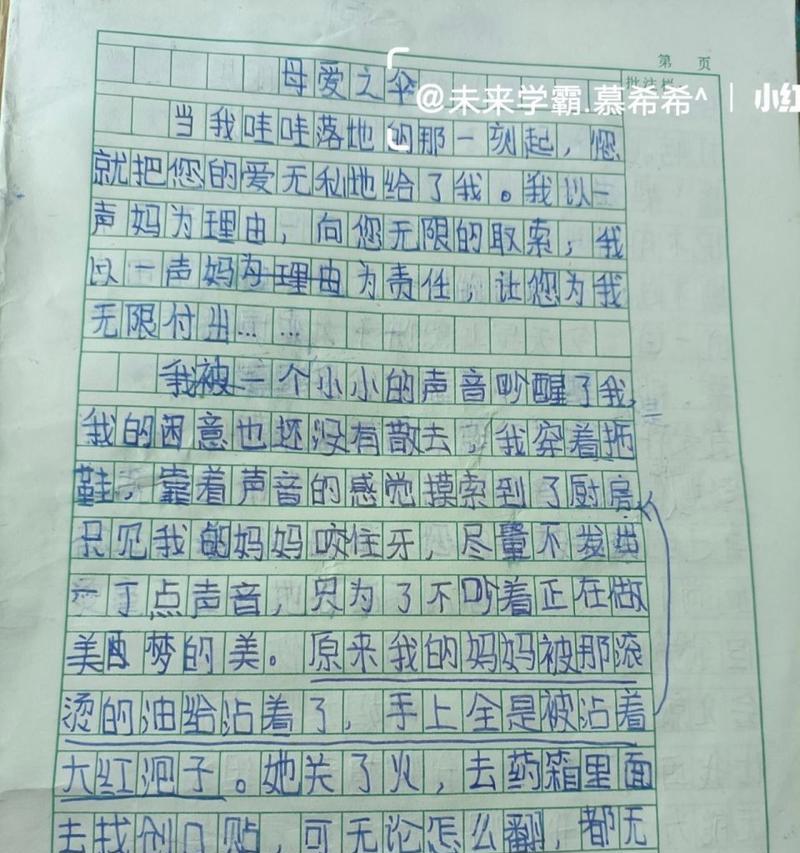 第 页
母爱之伞
批注栏
@未来学霸.慕希希^ | 小红
当我哇哇落地的那一刻起，您
就把您的爱无私地给了我。我以一
声妈为理由，向您无限的取索，我
以一声妈为理由为责任，让您为我
无限付出……
我被一个小小的声音吵醒了我，
我的困意也还没有散去，我穿着拖
鞋，靠着声音的感觉摸索到了厨房
只见我的妈妈咬住牙，尽量不发出
一丁点声音，只为了不吵着正在做
美梦的美。原来我的妈妈被那滚
烫的油给沾着了，手上全是被沾着
大红泡子。她关了火，去药箱里面
去找创口贴，可无论怎么翻，都无